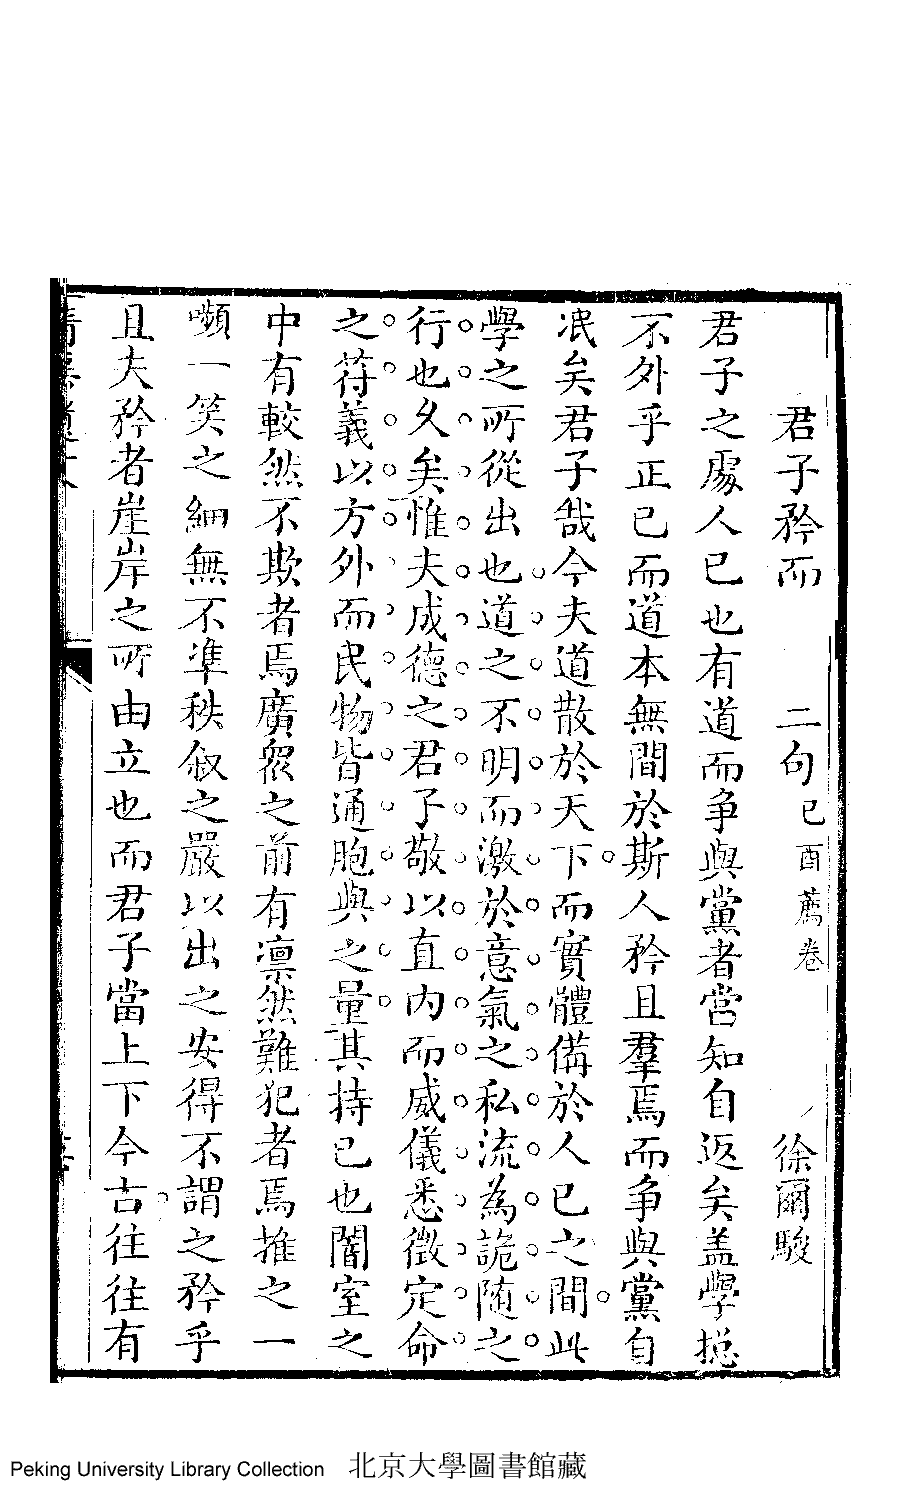 君子矜而　二句　己酉薦卷　徐爾駿
君子之處人己也有道而争與黨者當知自返矣盖學揔
不外乎正己而道本無間於斯人矜且羣焉而争與黨自
泯矣君子哉今夫道散於天下而實體備於人己之間此
學之所從出也道之不明而激於意氣之私流為詭随之
行也久矣惟夫成德之君子敬以直内而威儀悉徵定命
之符義以方外而民物皆通胞與之量其持己也闇室之
中有較然不欺者焉廣衆之前有凛然難犯者焉推之一
嚬一笑之細無不凖秩叙之嚴以出之安得不謂之矜乎
且夫矜者崖岸之所由立也而君子當上下今古往往有
Peking University Library Collection 北京大學圖書館藏